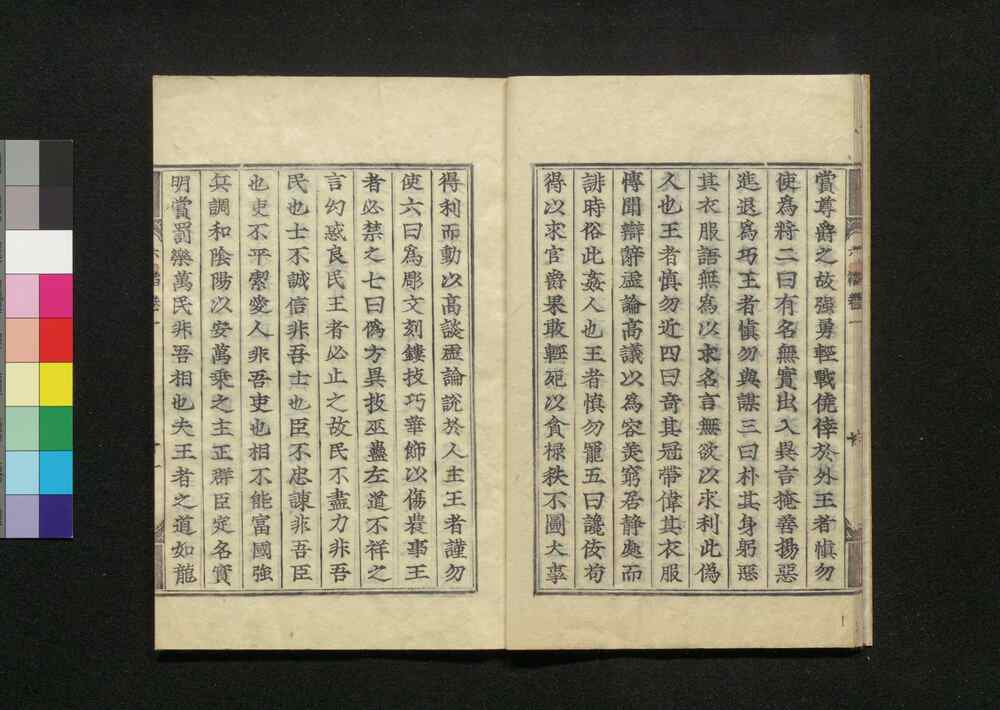 賞尊爵之故强勇輕戰僥倖於外王者愼勿
使爲將二曰有名無實出入異言掩善揚惡
進退爲巧王者愼勿與謀三曰朴其身躬惡
其衣服語無爲以求名言無欲以求利此僞
人也王者慎勿近四曰奇其冠帶偉其衣服
傳聞辯辭虛論高議以爲容美窮居静處而
誹時俗此姦人也王者慎勿寵五曰讒佞苟
得以求官爵果敢輕死以貪祿秩不圖大事
得利而動以高談虛論說於人主王者謹勿
使六曰爲彫文刻鏤技巧華飾以傷農事王
者必禁之七曰僞方異技巫蠱左道不祥之
言幻惑良民王者必止之故民不盡力非吾
民也士不誠信非吾士也臣不忠諫非吾臣
也吏不平潔愛人非吾吏也相不能富國強
兵調和陰陽以安萬乘之主正群臣定名實
明賞罰樂萬民非吾相也夫王者之道如龍
六韜卷一